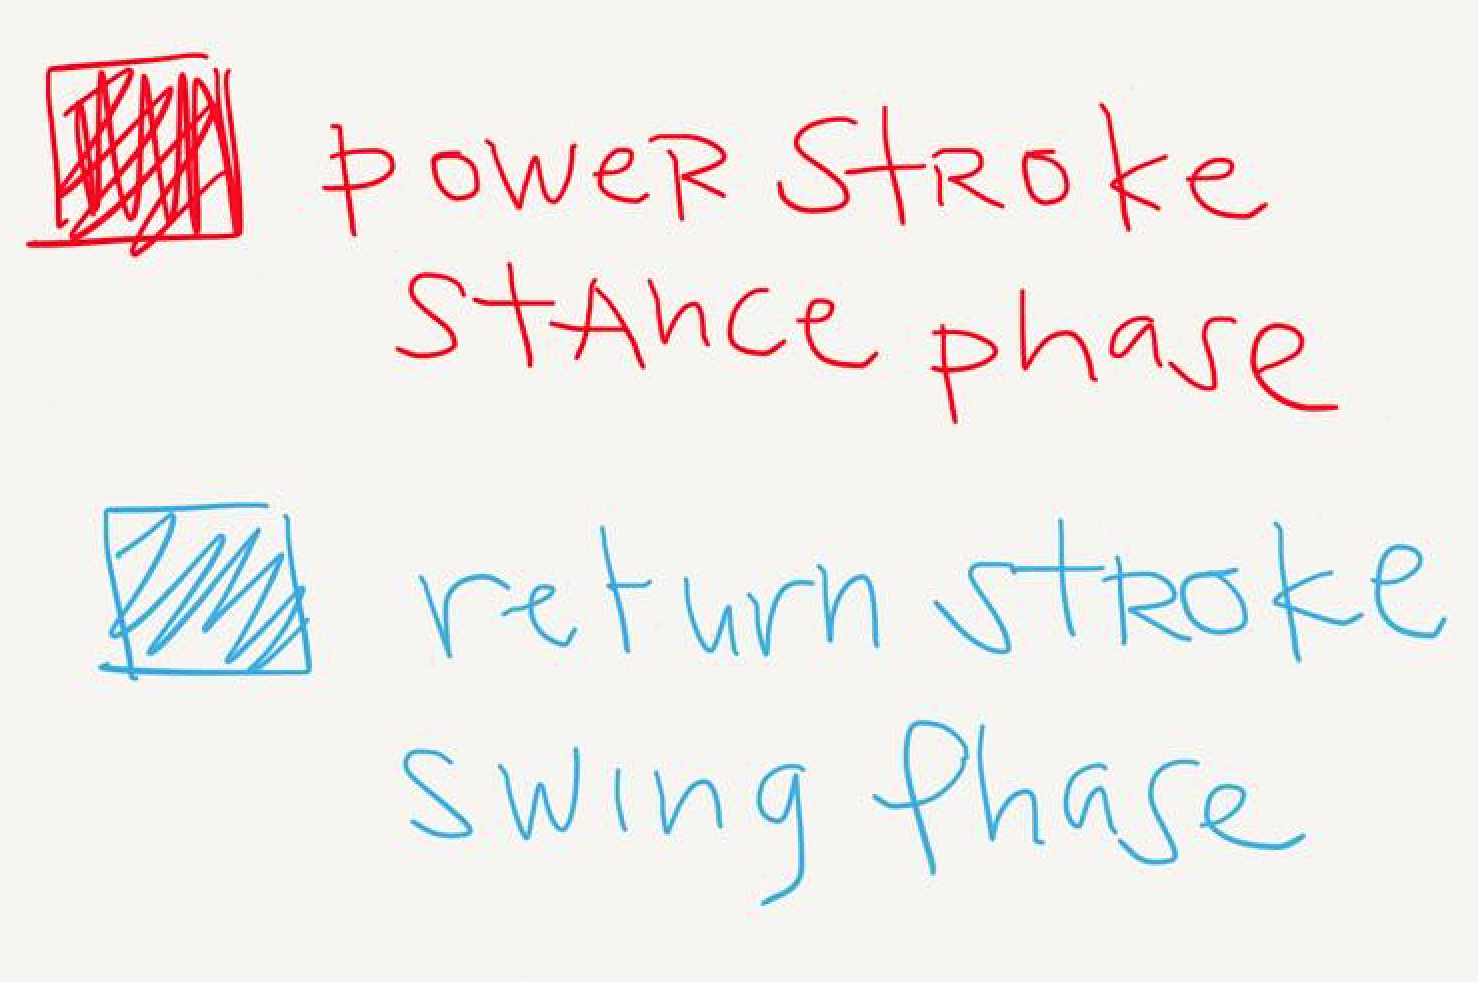 power stroke
stance phase
return stroke
swing phase